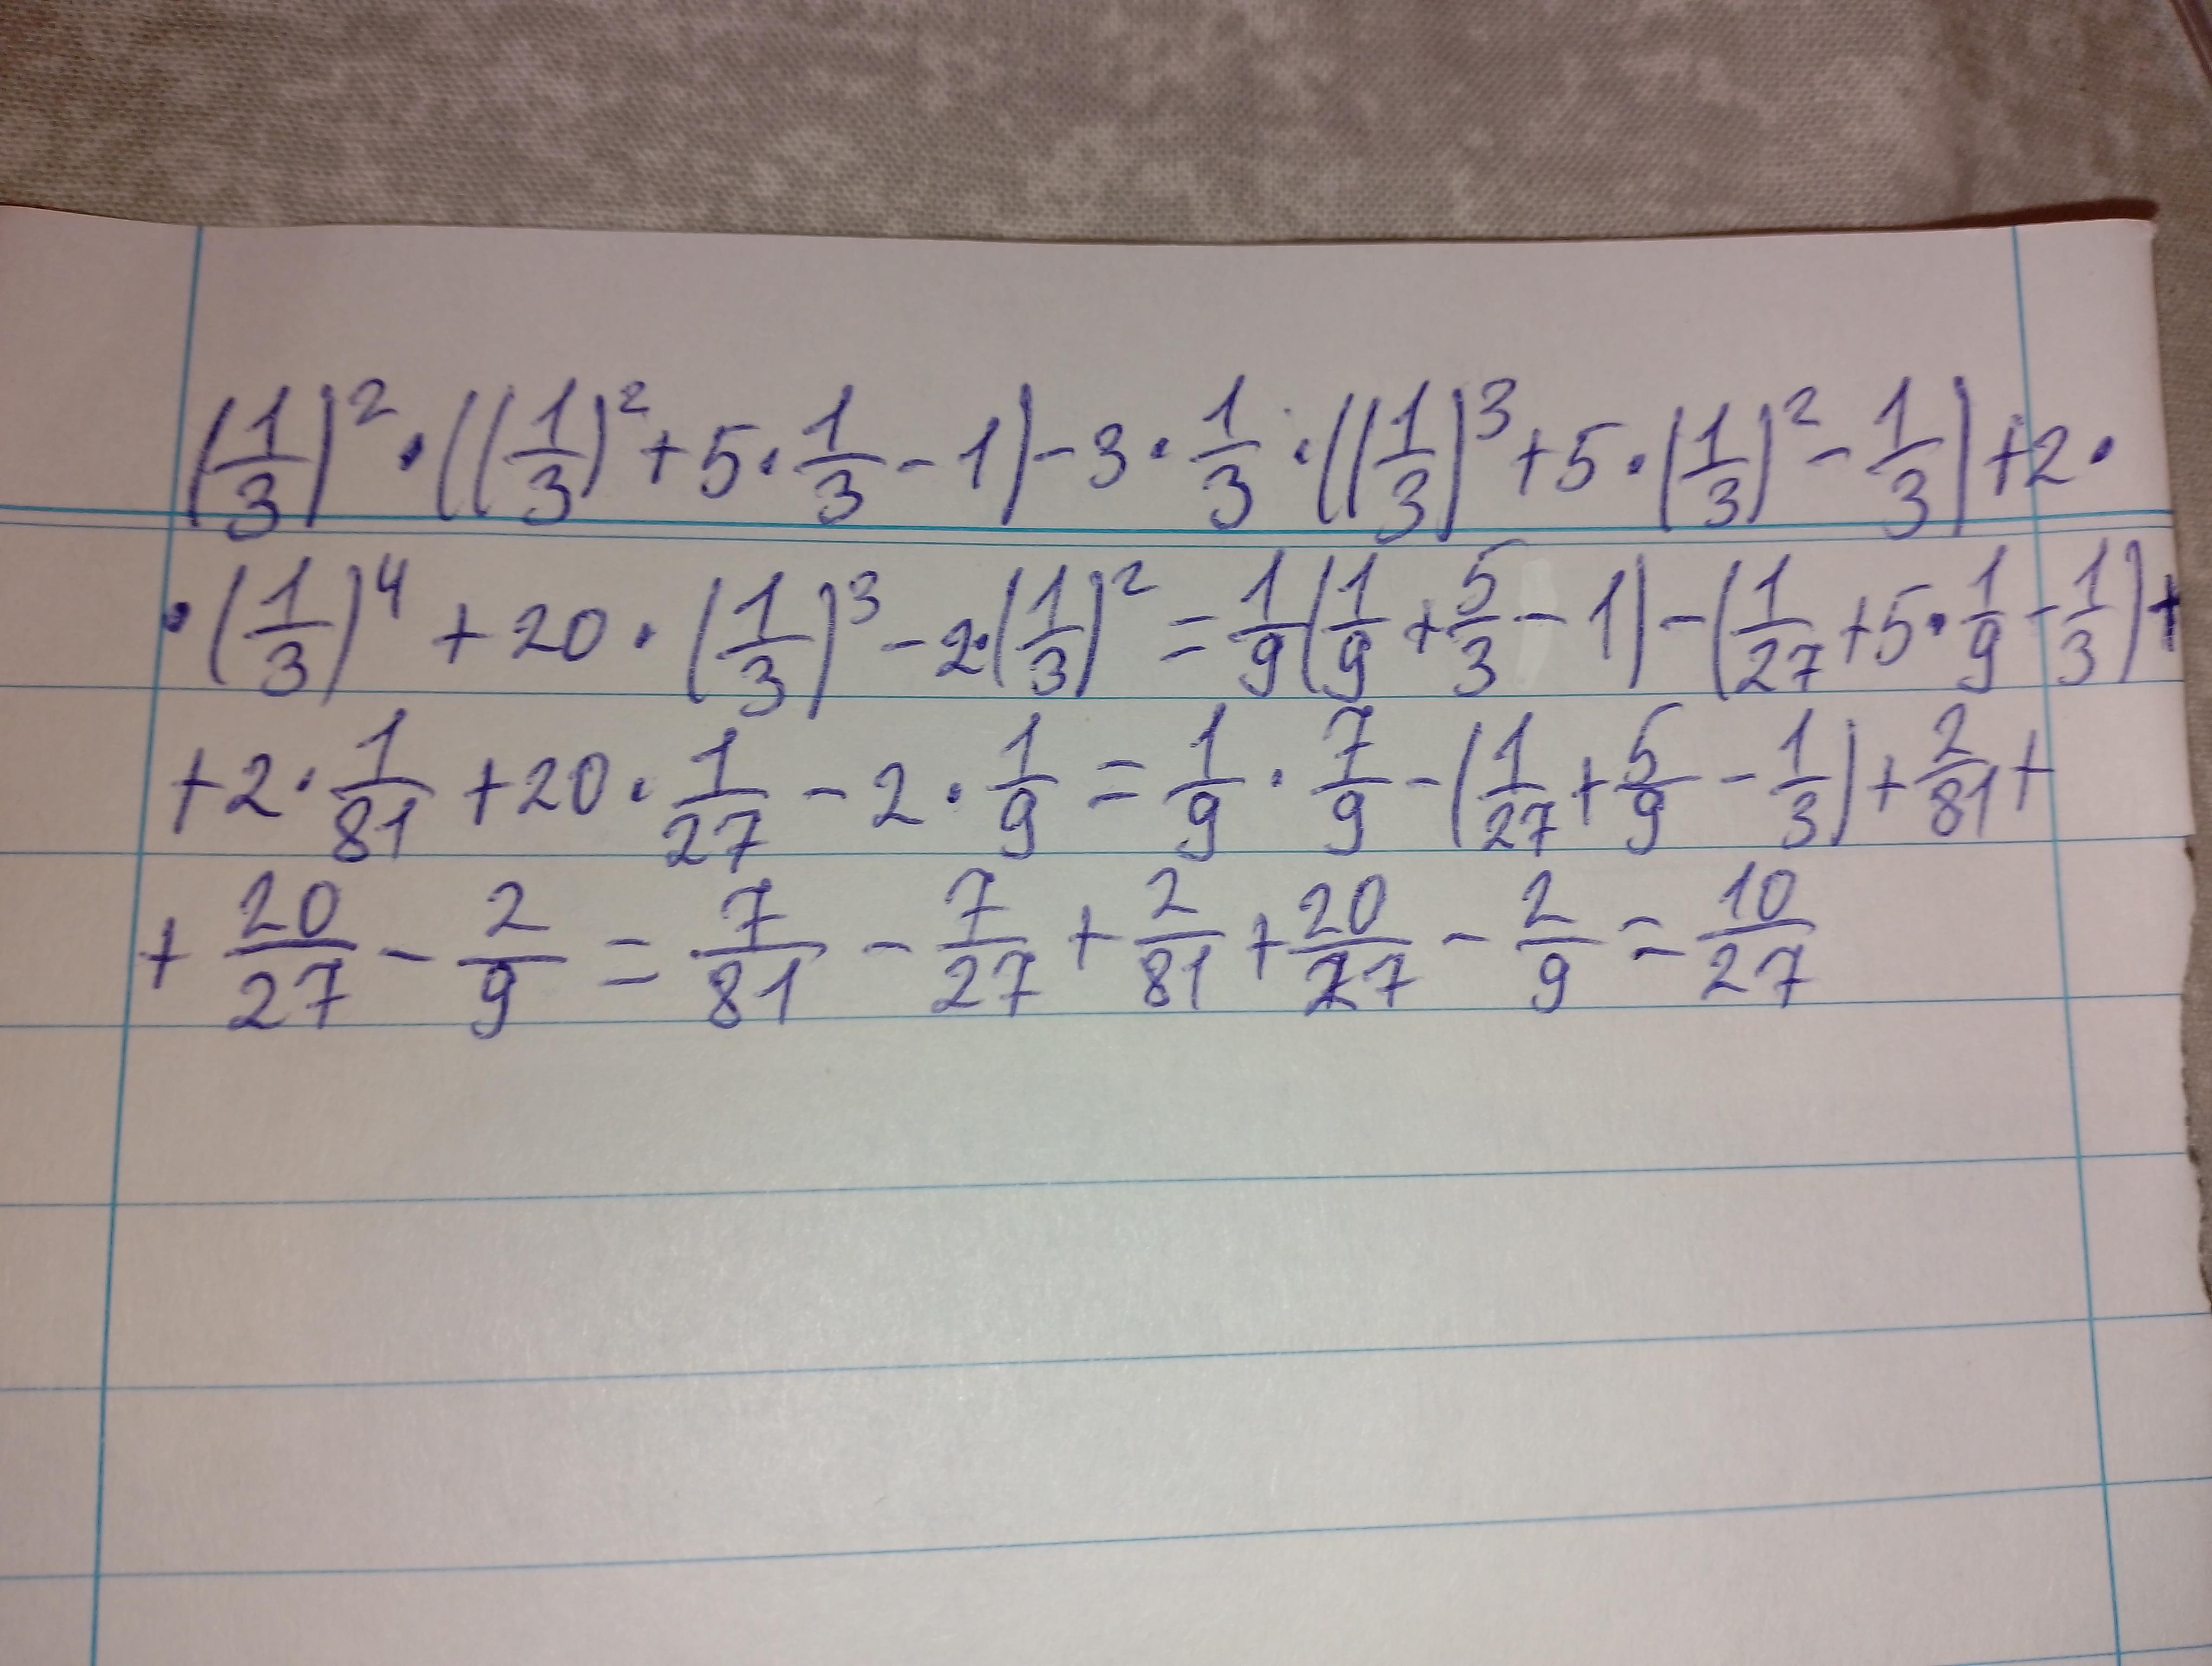 (1/3)² · ((1/3)² + 5 · 1/3 - 1) - 3 · 1/3 · ((1/3)³ + 5 · (1/3)² - 1/3) + 2 ·
· (1/3)⁴ + 20 · (1/3)³ - 2 · (1/3)² = 1/9 (1/9 + 5/3 - 1) - (1/27 + 5 · 1/9 - 1/3) +
+ 2 · 1/81 + 20 · 1/27 - 2 · 1/9 = 1/9 · 7/9 - (1/27 + 5/9 - 1/3) + 2/81 +
+ 20/27 - 2/9 = 7/81 - 7/27 + 2/81 + 20/27 - 2/9 = 10/27